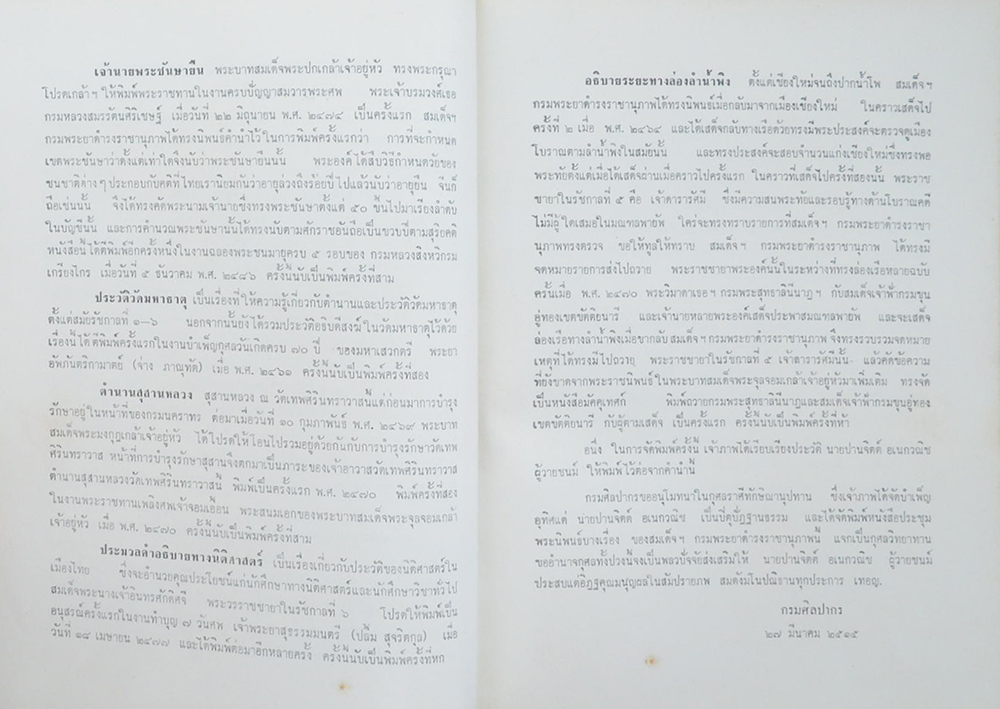 เจ้านายพระชันษายืน พระบาทสมเด็จพระปกเกล้าเจ้าอยู่หัว ทรงพระกรุณา
โปรดเกล้า ฯ ให้พิมพ์พระราชทานในงานครบปัญญาสมวารพระศพ พระเจ้าบรมวงศ์เธอ
กรมหลวงสมรรัตนศิริเชษฐ์ เมื่อวันที่ ๒๒ มิถุนายน พ.ศ. ๒๔๗๔ เป็นครั้งแรก สมเด็จฯ
กรมพระยาดำรงราชานุภาพได้ทรงนิพนธ์คำนำไว้ในการพิมพ์ครั้งแรกว่า การที่จะกำหนด
เขตพระชันษาว่าตั้งแต่เท่าใดจึงนับว่าพระชันษายืนนั้น พระองค์ได้สืบวิธีกำหนดวัยของ
ชนชาติต่าง ๆ ประกอบกับคติที่ไทยเรานิยมกันว่าอายุล่วงถึงร้อยปี ไปแล้วนับว่าอายุยืน จีนก็
ถือเช่นนั้น จึงได้ทรงคัดพระนามเจ้านายซึ่งทรงพระชันษาตั้งแต่ ๕๐ ขึ้นไปมาเรียงลำดับ
ในบัญชีนั้น และการคำนวณพระชันษานั้นได้ทรงนับตามศักราชอันถือเป็นขวบปีตามสุริยคติ
หนังสือนี้ได้ตีพิมพ์อีกครั้งหนึ่งในงานฉลองพระชนมายุครบ ๕ รอบของ กรมหลวงสิงหวิกรม
เกรียงไกร เมื่อวันที่ ๕ ธันวาคม พ.ศ. ๒๔๘๖ ครั้งนี้นับเป็นพิมพ์ครั้งที่สาม
ประวัติวัดมหาธาตุ เป็นเรื่องที่ให้ความรู้เกี่ยวกับตำนานและประวัติวัดมหาธาตุ
ตั้งแต่สมัยรัชกาลที่ ๑—๖ นอกจากนั้นยังได้รวมประวัติอธิบดีสงฆ์ในวัดมหาธาตุไว้ด้วย
เรื่องนี้ได้ตีพิมพ์ครั้งแรกในงานบำเพ็ญกุศลวันเกิดครบ ๗๐ ปี ของมหาเสวกตรี พระยา
อัพภันตริกามาตย์ (จ่าง ภาณุทัต) เมื่อ พ.ศ. ๒๔๖๑ ครั้งนี้นับเป็นพิมพ์ครั้งที่สอง
ตำนานสุสานหลวง สุสานหลวง ณ วัดเทพศิรินทราวาสนี้แต่ก่อนมาการบำรุง
รักษาอยู่ในหน้าที่ของกรมนคราทร ต่อมาเมื่อวันที่ ๑๐ กุมภาพันธ์ พ.ศ. ๒๔๖๙ พระบาท
สมเด็จพระมงกุฎเกล้าเจ้าอยู่หัว ได้โปรดให้โอนไปรวมอยู่ด้วยกันกับการบำรุงรักษาวัดเทพ
ศิรินทราวาส หน้าที่การบำรุงรักษาสุสานจึงตกมาเป็นภาระของเจ้าอาวาสวัดเทพศิรินทราวาส
ตำนานสุสานหลวงวัดเทพศิรินทราวาสนี้ พิมพ์เป็นครั้งแรก พ.ศ. ๒๔๗๐ พิมพ์ครั้งที่สอง
ในงานพระราชทานเพลิงศพเจ้าจอมเอื้อน พระสนมเอกของพระบาทสมเด็จพระจุลจอมเกล้า
เจ้าอยู่หัว เมื่อ พ.ศ. ๒๔๗๐ ครั้งนี้นับเป็นพิมพ์ครั้งที่สาม
ประมวลคำอธิบายทางนิติศาสตร์ เป็นเรื่องเกี่ยวกับประวัติของนิติศาสตร์ใน
เมืองไทย ซึ่งจะอำนวยคุณประโยชน์แก่นักศึกษาทางนิติศาสตร์และนักศึกษาวิชาทั่วไป
สมเด็จพระนางเจ้าอินทรศักดิศจี พระวรราชชายาในรัชกาลที่ ๖ โปรดให้พิมพ์เป็น
อนุสรณ์ครั้งแรกในงานทำบุญ ๗ วันศพ เจ้าพระยาสุธรรมมนตรี (ปลื้ม สุจริตกุล) เมื่อ
วันที่ ๑๘ เมษายน ๒๔๗๗ และได้พิมพ์ต่อมาอีกหลายครั้ง ครั้งนี้นับเป็นพิมพ์ครั้งที่หก
อธิบายระยะทางล่องลำน้ำพิง ตั้งแต่เชียงใหม่จนถึงปากน้ำโพ สมเด็จฯ
กรมพระยาดำรงราชานุภาพได้ทรงนิพนธ์เมื่อกลับมาจากเมืองเชียงใหม่ ในคราวเสด็จไป
ครั้งที่ ๒ เมื่อ พ.ศ. ๒๔๖๔ และได้เสด็จกลับทางเรือด้วยทรงมีพระประสงค์จะตรวจดูเมือง
โบราณตามลำน้ำพิงในสมัยนั้น และทรงประสงค์จะสอบจำนวนแก่งเชียงใหม่ซึ่งทรงพอ
พระทัยตั้งแต่เมื่อได้เสด็จผ่านเมื่อคราวไปครั้งแรก ในคราวที่เสด็จไปครั้งที่สองนั้น พระราช
ชายาในรัชกาลที่ ๕ คือ เจ้าดารารัศมี ซึ่งมีความสนพระทัยและรอบรู้ทางด้านโบราณคดี
ไม่มีผู้ใดเสมอในมณฑลพายัพ ใคร่จะทรงทราบรายการที่สมเด็จฯ กรมพระยาดำรงราชา
นุภาพทรงตรวจ ขอให้ทูลให้ทราบ สมเด็จฯ กรมพระยาดำรงราชานุภาพ ได้ทรงมี
จดหมายรายการส่งไปถวาย พระราชชายาพระองค์นั้นในระหว่างที่ทรงล่องเรือหลายฉบับ
ครั้นเมื่อ พ.ศ. ๒๔๗๐ พระวิมาดาเธอฯ กรมพระสุทธาสินีนาฏฯ กับสมเด็จเจ้าฟ้ากรมขุน
อู่ทองเขตขัตติยนารี และเจ้านายหลายพระองค์เสด็จประพาสมณฑลพายัพ และจะเสด็จ
ล่องเรือทางลำน้ำพิงเมื่อขากลับ สมเด็จฯ กรมพระยาดำรงราชานุภาพ จึงทรงรวบรวมจดหมาย
เหตุที่ได้ทรงมีไปถวาย พระราชชายาในรัชกาลที่ ๕ เจ้าดารารัศมีนั้น แล้วคัดข้อความ
ที่ยังขาดจากพระราชนิพนธ์ในพระบาทสมเด็จพระจุลจอมเกล้าเจ้าอยู่หัวมาเพิ่มเติม ทรงจัด
เป็นหนังสือมัคคุเทศก์ พิมพ์ถวายกรมพระสุทธาสินีนาฏและสมเด็จเจ้าฟ้ากรมขุนอู่ทอง
เขตขัตติยนารี กับผู้ตามเสด็จ เป็นครั้งแรก ครั้งนี้นับเป็นพิมพ์ครั้งที่ห้า
อนึ่ง ในการจัดพิมพ์ครั้งนี้ เจ้าภาพได้เรียบเรียงประวัติ นายปานจิตต์ อเนกวณิช
ผู้วายชนม์ ให้พิมพ์ไว้ต่อจากคำนำนี้
กรมศิลปากรขออนุโมทนาในกุศลราศีทักษิณานุปทาน ซึ่งเจ้าภาพได้จัดบำเพ็ญ
อุทิศแด่ นายปานจิตต์ อเนกวณิช เป็นปิตุปัฏฐานธรรม และได้จัดพิมพ์หนังสือประชุม
พระนิพนธ์บางเรื่อง ของสมเด็จฯ กรมพระยาดำรงราชานุภาพนี้ แจกเป็นกุศลวิทยาทาน
ขออำนาจกุศลทั้งปวงนี้จงเป็นพลวปัจจัยส่งเสริมให้ นายปานจิตต์ อเนกวณิช ผู้วายชนม์
ประสบแต่อิฏฐคุณมนุญผลในสัมปรายภพ สมดังมโนปณิธานทุกประการ เทอญ.
กรมศิลปากร
๒๗ มีนาคม ๒๕๑๕